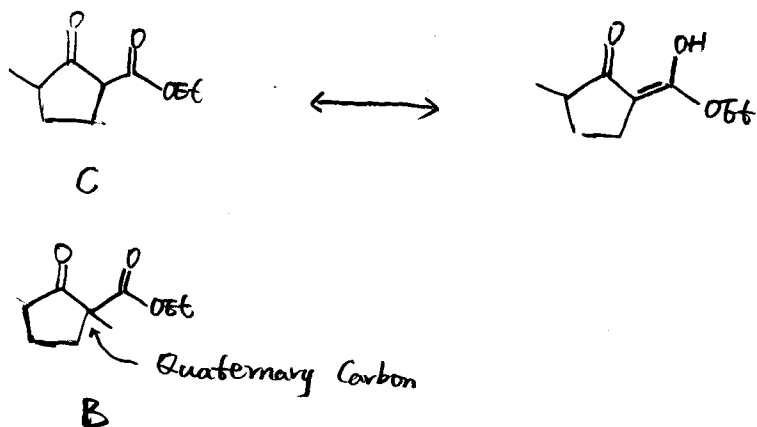 O O OEt
O OH OEt
C
O O OEt
Quaternary Carbon
B